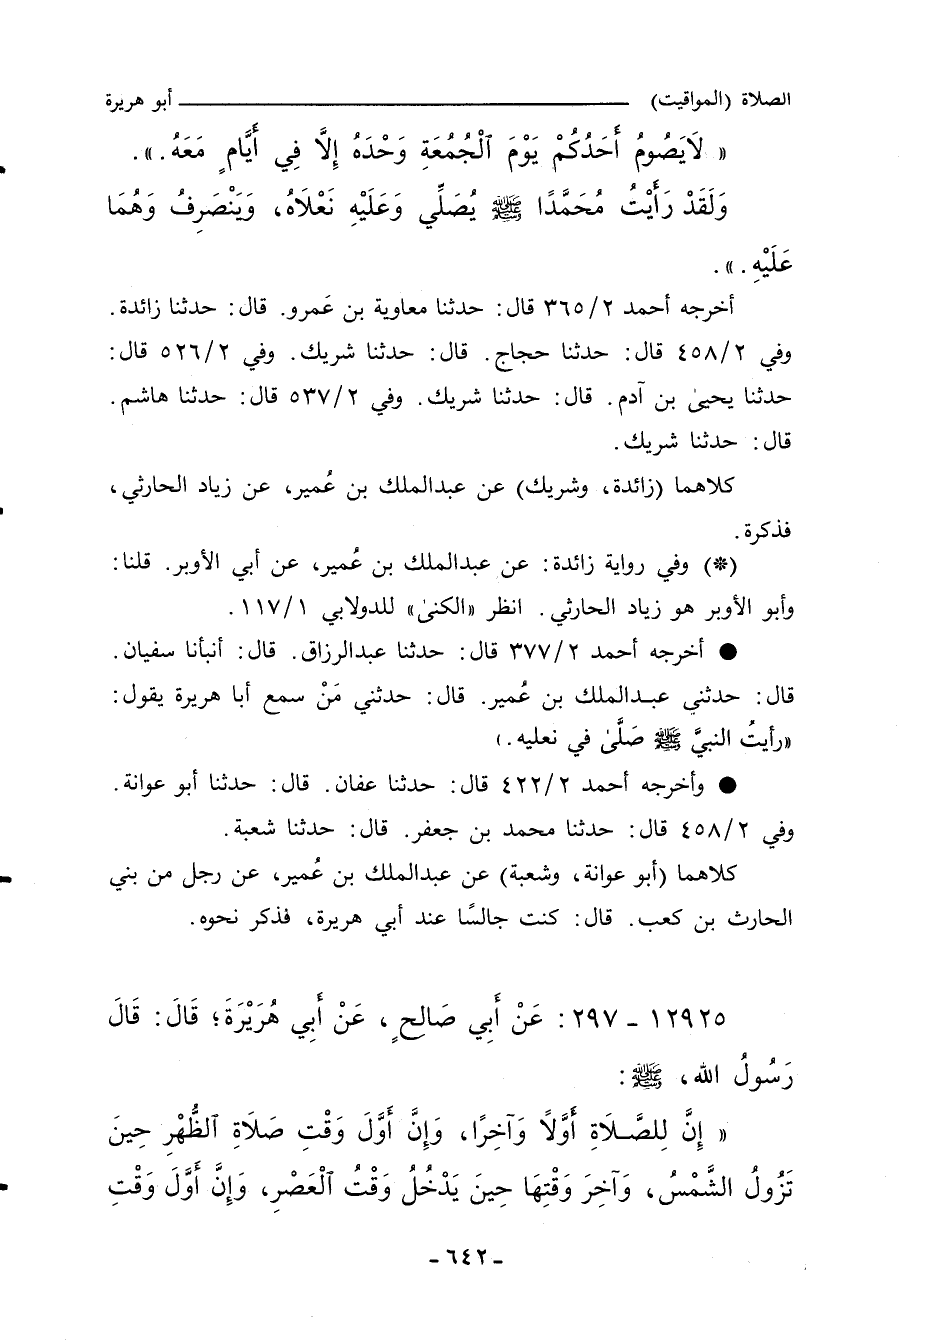 الصلاة (المواقيت) ـــــــــــــــــ أبو هريرة
« لَايَصُومُ أَحَدُكُمْ يَوْمَ ٱلْجُمُعَةِ وَحْدَهُ إِلَّا فِي أَيَّامٍ مَعَهُ . ».
وَلَقَدْ رَأَيْتُ مُحَمَّدًا ﷺ يُصَلِّي وَعَلَيْهِ نَعْلَاهُ، وَيَنْصَرِفُ وَهُمَا
عَلَيْهِ . ».
أخرجه أحمد ٣٦٥/٢ قال: حدثنا معاوية بن عَمرو. قال: حدثنا زائدة.
وفي ٤٥٨/٢ قال: حدثنا حجاج. قال: حدثنا شريك. وفي ٥٢٦/٢ قال:
حدثنا يحيىٰ بن آدم. قال: حدثنا شريك. وفي ٥٣٧/٢ قال: حدثنا هاشم.
قال: حدثنا شريك.
كلاهما (زائدة، وشريك) عن عبدالملك بن عُمير، عن زياد الحارثي،
فذكرة.
(*) وفي رواية زائدة: عن عبدالملك بن عُمير، عن أبي الأوبر. قلنا:
وأبو الأوبر هو زياد الحارثي. انظر «الكنىٰ» للدولابي ١١٧/١.
● أخرجه أحمد ٣٧٧/٢ قال: حدثنا عبدالرزاق. قال: أنبأنا سفيان.
قال: حدثني عبدالملك بن عُمير. قال: حدثني مَنْ سمع أبا هريرة يقول:
«رأيتُ النبيَّ ﷺ صَلَّىٰ في نعليه.)
● وأخرجه أحمد ٤٢٢/٢ قال: حدثنا عفان. قال: حدثنا أبو عوانة.
وفي ٤٥٨/٢ قال: حدثنا محمد بن جعفر. قال: حدثنا شعبة.
كلاهما (أبو عوانة، وشعبة) عن عبدالملك بن عُمير، عن رجل من بني
الحارث بن كعب. قال: كنت جالسًا عند أبي هريرة، فذكر نحوه.
١٢٩٢٥ - ٢٩٧: عَنْ أَبِي صَالِحٍ، عَنْ أَبِي هُرَيْرَةَ؛ قَالَ: قَالَ
رَسُولُ الله، ﷺ:
« إِنَّ لِلصَّلَاةِ أَوَّلاً وَآخِرًا، وَإِنَّ أَوَّلَ وَقْتِ صَلَاةِ ٱلظُّهْرِ حِينَ
تَزُولُ الشَّمْسُ، وَآخِرَ وَقْتِهَا حِينَ يَدْخُلُ وَقْتُ الْعَصْرِ، وَإِنَّ أَوَّلَ وَقْتِ
- ٦٤٢ -